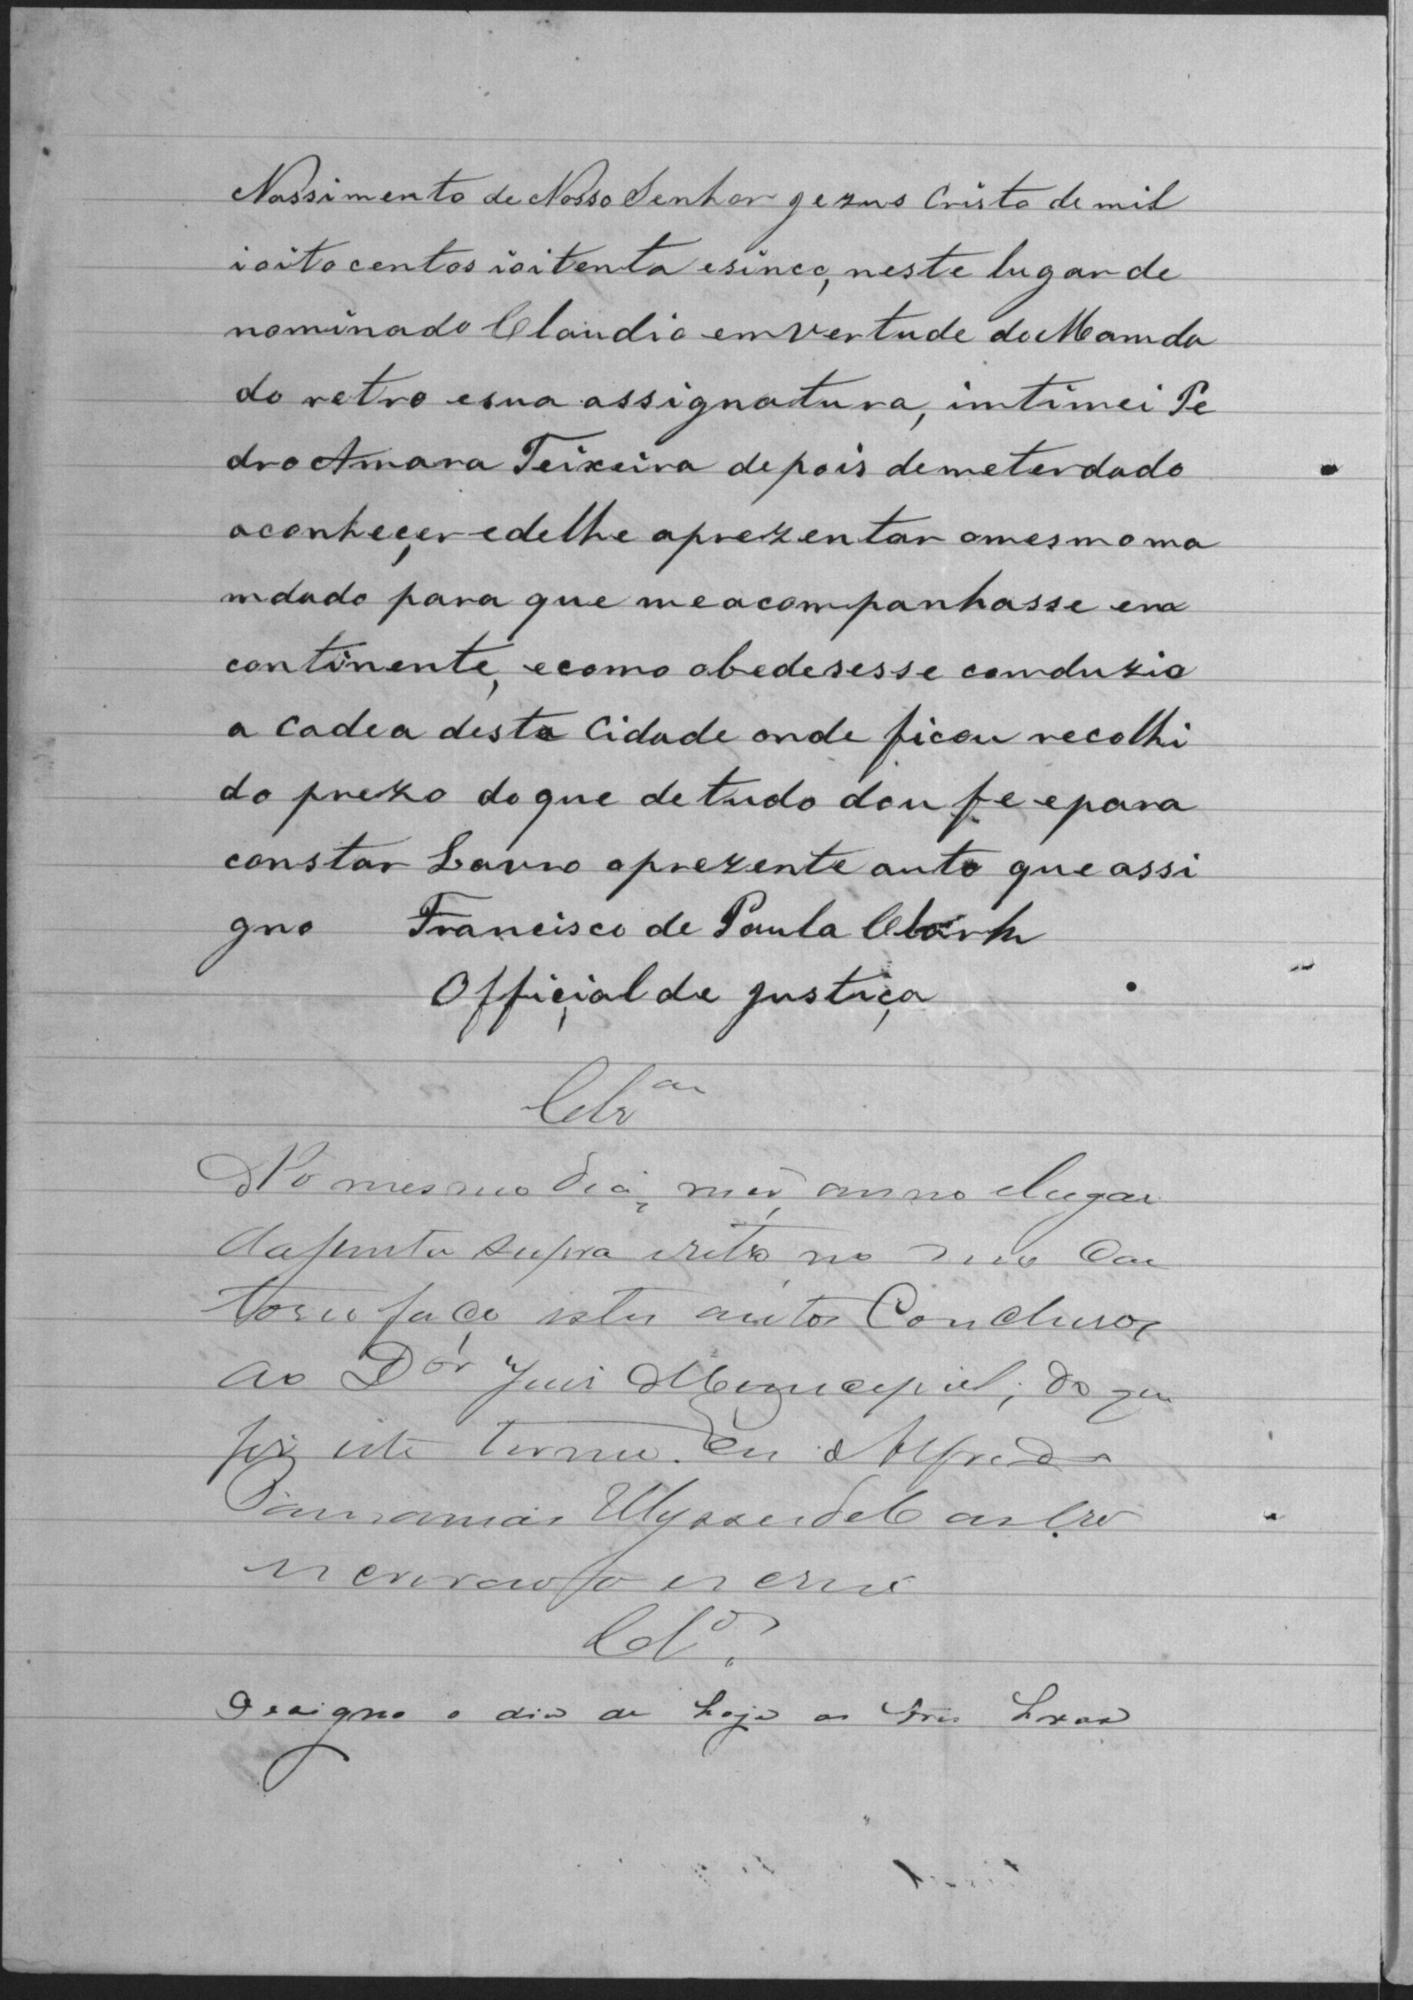 Nassimento de Nosso Senhor gezus Cristo de mil
ioito centos ioitenta esinco, neste lugar de
nominado Claudio em vertude do Mamda
do retro esua assignatura, imtimei Pe
dro Amara Teixeira depois demeterdado
aconheçer edelhe aprezentar omesmo ma
mdado para que meacompanhasse em
continente, ecomo obedesesse comduzio
a Cadea desta Cidade onde ficou recolhi
do prezo do que de tudo dou fe epara
constar Lavro oprezente auto que assi
gno Francisco de Paula
Offiçial de justiça
Clz am
No mesmo dia, mes, anno elugar
supra eretro, no meo Car
torio faço estes autos Conclusos
ao Dor Juis Municipal; do que
fis este termo. Eu Alfredo
Ulysses de Castro
escrivão o escrevi
Clo.
Designo o dia de hoje as tres horas